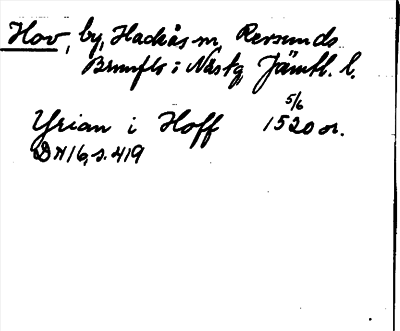 Hov, by, Hackås sn, Revsunds
Brunflo i Näskg Jämtl. l.
5/6
Yrian i Hoff 1520 or.
DN 16, s. 419